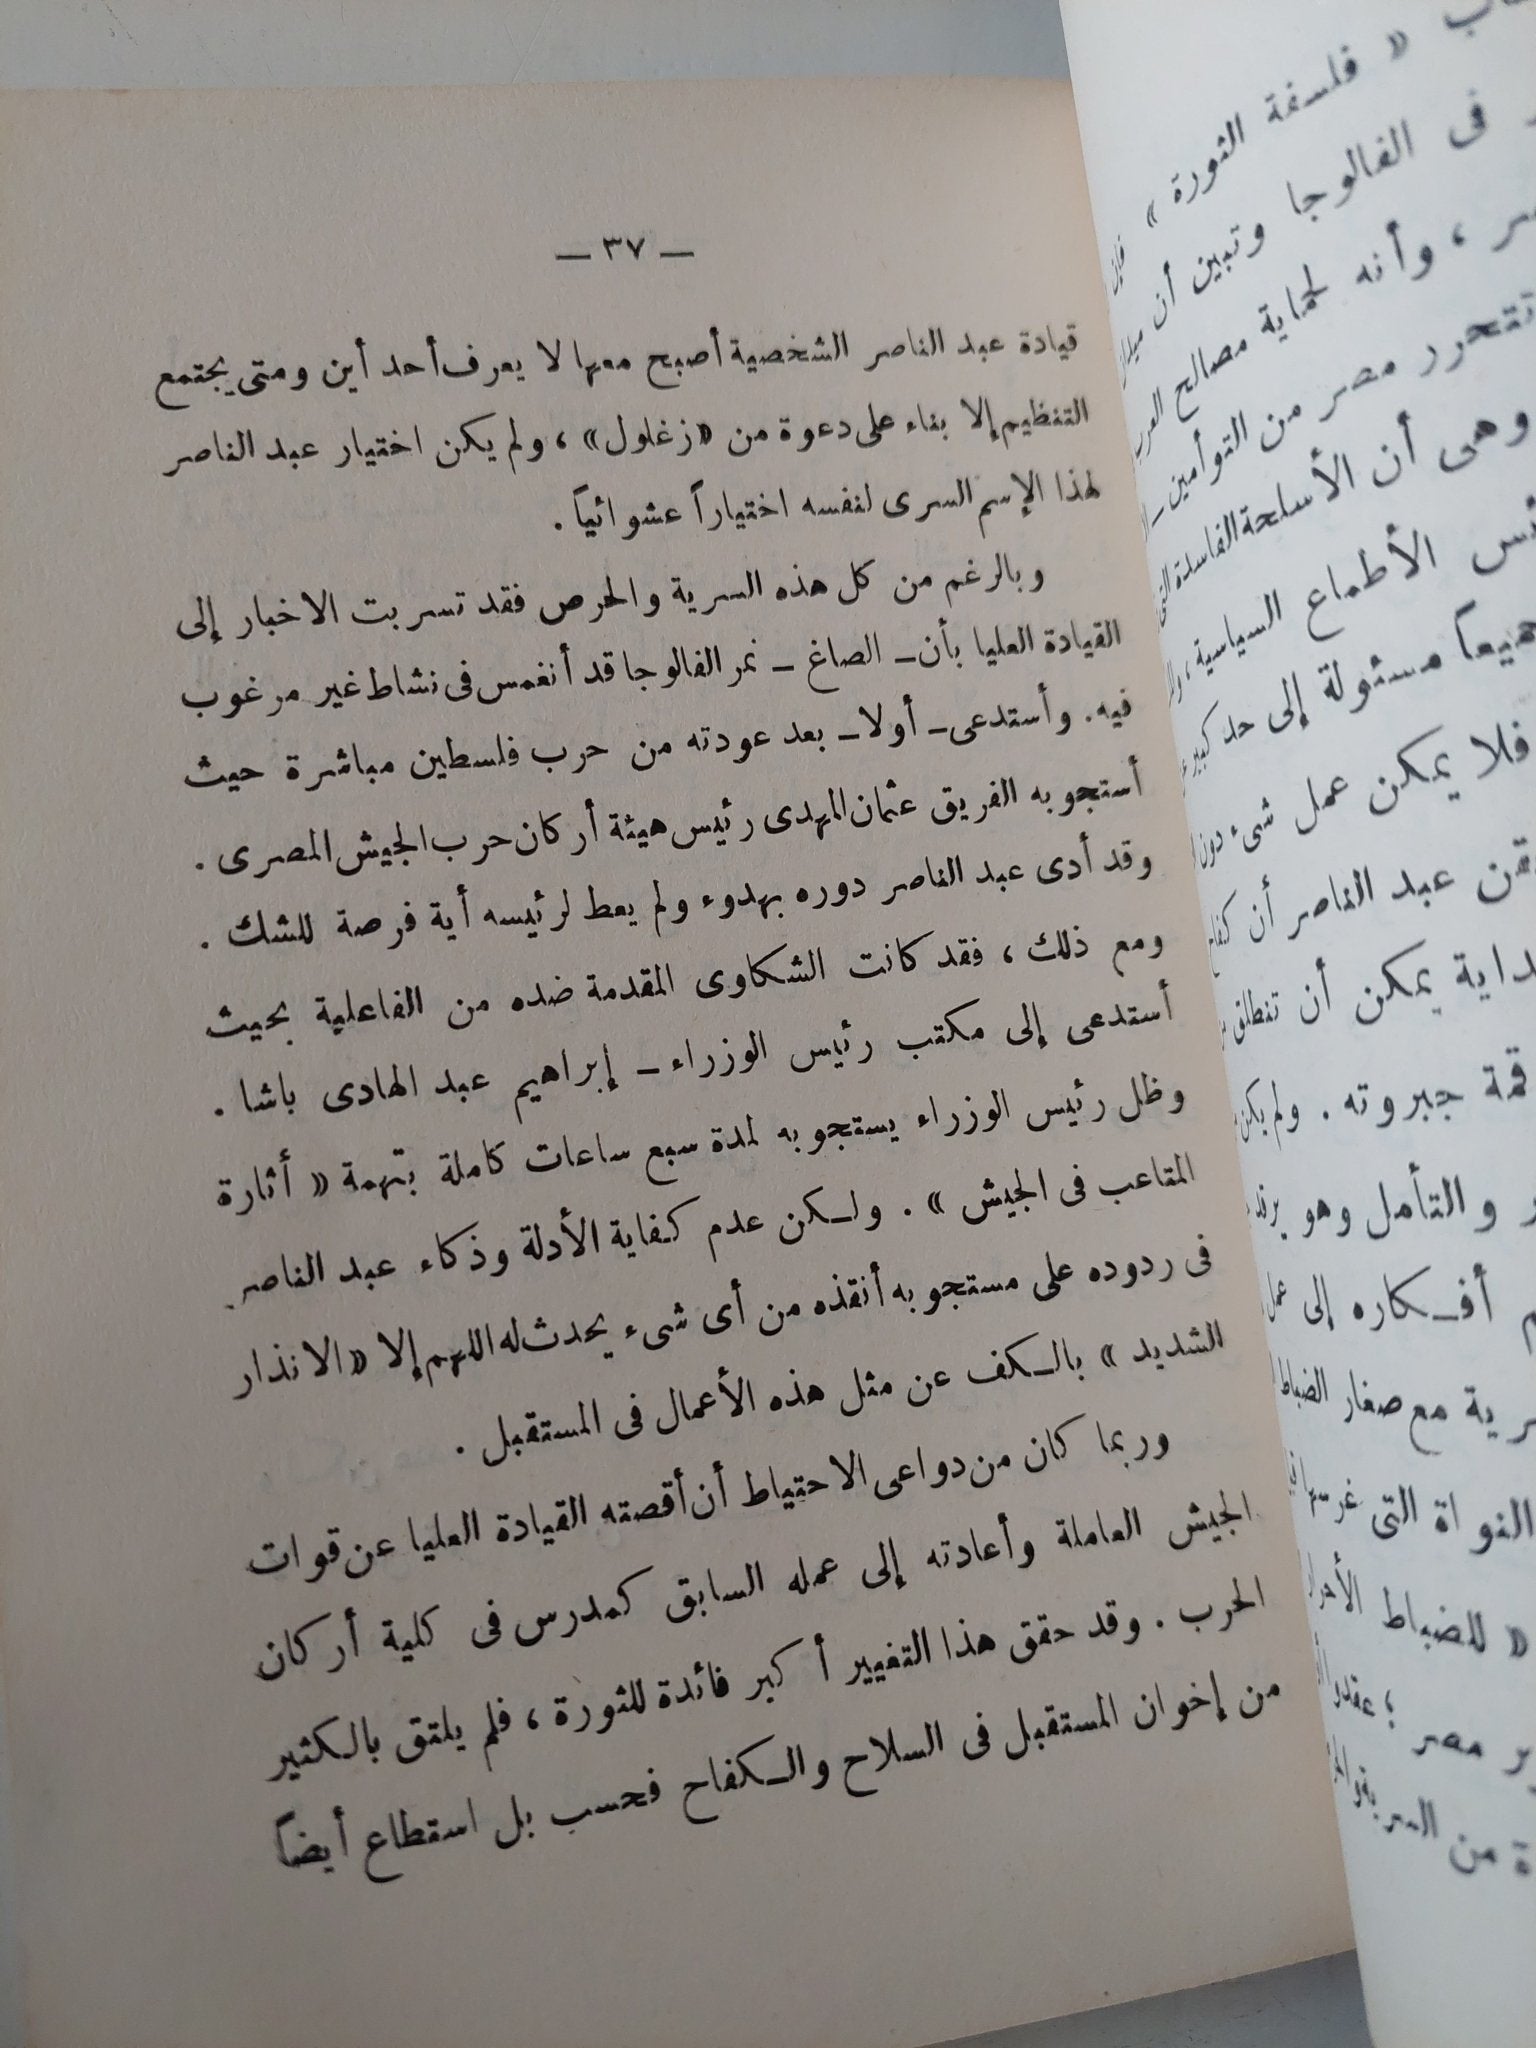 — ٣٧ —
قيادة عبد الناصر الشخصية أصبح معها لا يعرف أحد أين ومتى يجتمع
التنظيم إلا بناء على دعوة من «زغلول» ، ولم يكن اختيار عبد الناصر
لهذا الإسم السرى لنفسه اختياراً عشوائياً .
وبالرغم من كل هذه السرية والحرص فقد تسربت الاخبار إلى
القيادة العليا بأن ـ الصاغ ـ نمر الفالوجا قد أنغمس فى نشاط غير مرغوب
فيه . وأستدعى ـ أولا ـ بعد عودته من حرب فلسطين مباشرة حيث
أستجوبه الفريق عثمان المهدى رئيس هيئة أركان حرب الجيش المصرى .
وقد أدى عبد الناصر دوره بهدوء ولم يعط لرئيسه أية فرصة للشك .
ومع ذلك ، فقد كانت الشكاوى المقدمة ضده من الفاعلية بحيث
أستدعى إلى مكتب رئيس الوزراء ـ إبراهيم عبد الهادى باشا .
وظل رئيس الوزراء يستجوبه لمدة سبع ساعات كاملة بتهمة « أثارة
المتاعب فى الجيش » . ولـكن عدم كفاية الأدلة وذكاء عبد الناصر
فى ردوده على مستجوبه أنقذه من أى شىء يحدث له اللهم إلا « الانذار
الشديد » بالـكف عن مثل هذه الأعمال فى المستقبل .
وربما كان من دواعى الاحتياط أن أقصته القيادة العليا عن قوات
الجيش العاملة وأعادته إلى عمله السابق كمدرس فى كلية أركان
الحرب . وقد حقق هذا التغيير أكبر فائدة للثورة ، فلم يلتق بالـكثير
من إخوان المستقبل فى السلاح والـكفاح فحسب بل استطاع أيضاً
« فلسفة الثورة »
فى الفالوجا وتبين أن
، وأنه لحماية مصالح
تتحرر مصر من التوأمين ـ
وهى أن الأسلحة الفاسدة التى
الأطماع السياسية ،
مسئولة إلى حد كبير
فلا يمكن عمل شىء دون
عبد الناصر أن
يمكن أن تنطلق
قمة جبروته . ولم يكن
والتأمل وهو
أفـكاره إلى
مع صغار الضباط
النواة التى
« للضباط
مصر ؛
من